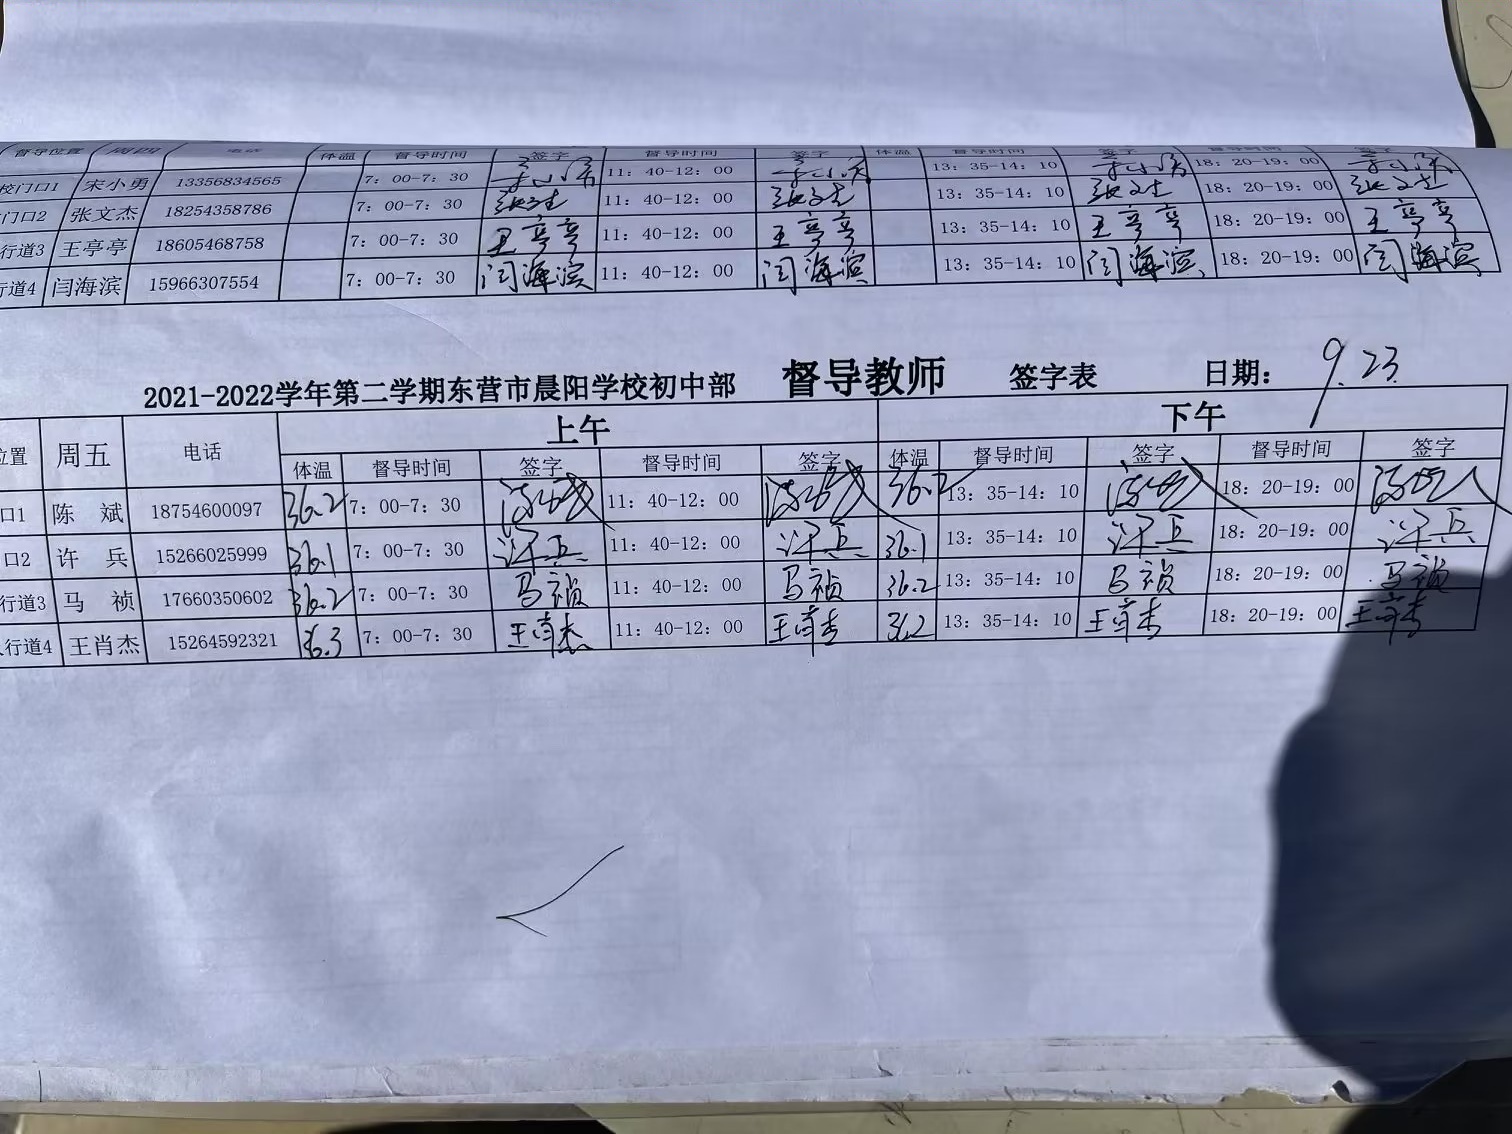 督导位置 周四 电话 体温 督导时间 签字 督导时间 签字 体温 督导时间 签字 督导时间 签字
校门口1 宋小勇 13356834565 7：00-7：30 11：40-12：00 13：35-14：10 18：20-19：00
门口2 张文杰 18254358786 7：00-7：30 张文杰 11：40-12：00 张文杰 13：35-14：10 张文杰 18：20-19：00 张文杰
行道3 王亭亭 18605468758 7：00-7：30 王亭亭 11：40-12：00 王亭亭 13：35-14：10 王亭亭 18：20-19：00 王亭亭
行道4 闫海滨 15966307554 7：00-7：30 闫海滨 11：40-12：00 闫海滨 13：35-14：10 闫海滨 18：20-19：00 闫海滨
2021-2022学年第二学期东营市晨阳学校初中部 督导教师 签字表 日期： 9.23
位置 周五 电话 上午 下午
体温 督导时间 签字 督导时间 签字 体温 督导时间 签字 督导时间 签字
口1 陈 斌 18754600097 36.2 7：00-7：30 11：40-12：00 36.2 13：35-14：10 18：20-19：00
口2 许 兵 15266025999 36.1 7：00-7：30 许兵 11：40-12：00 许兵 36.1 13：35-14：10 许兵 18：20-19：00 许兵
行道3 马 祯 17660350602 36.2 7：00-7：30 马祯 11：40-12：00 马祯 36.2 13：35-14：10 马祯 18：20-19：00 马祯
人行道4 王肖杰 15264592321 36.3 7：00-7：30 王肖杰 11：40-12：00 王肖杰 36.2 13：35-14：10 王肖杰 18：20-19：00 王肖杰